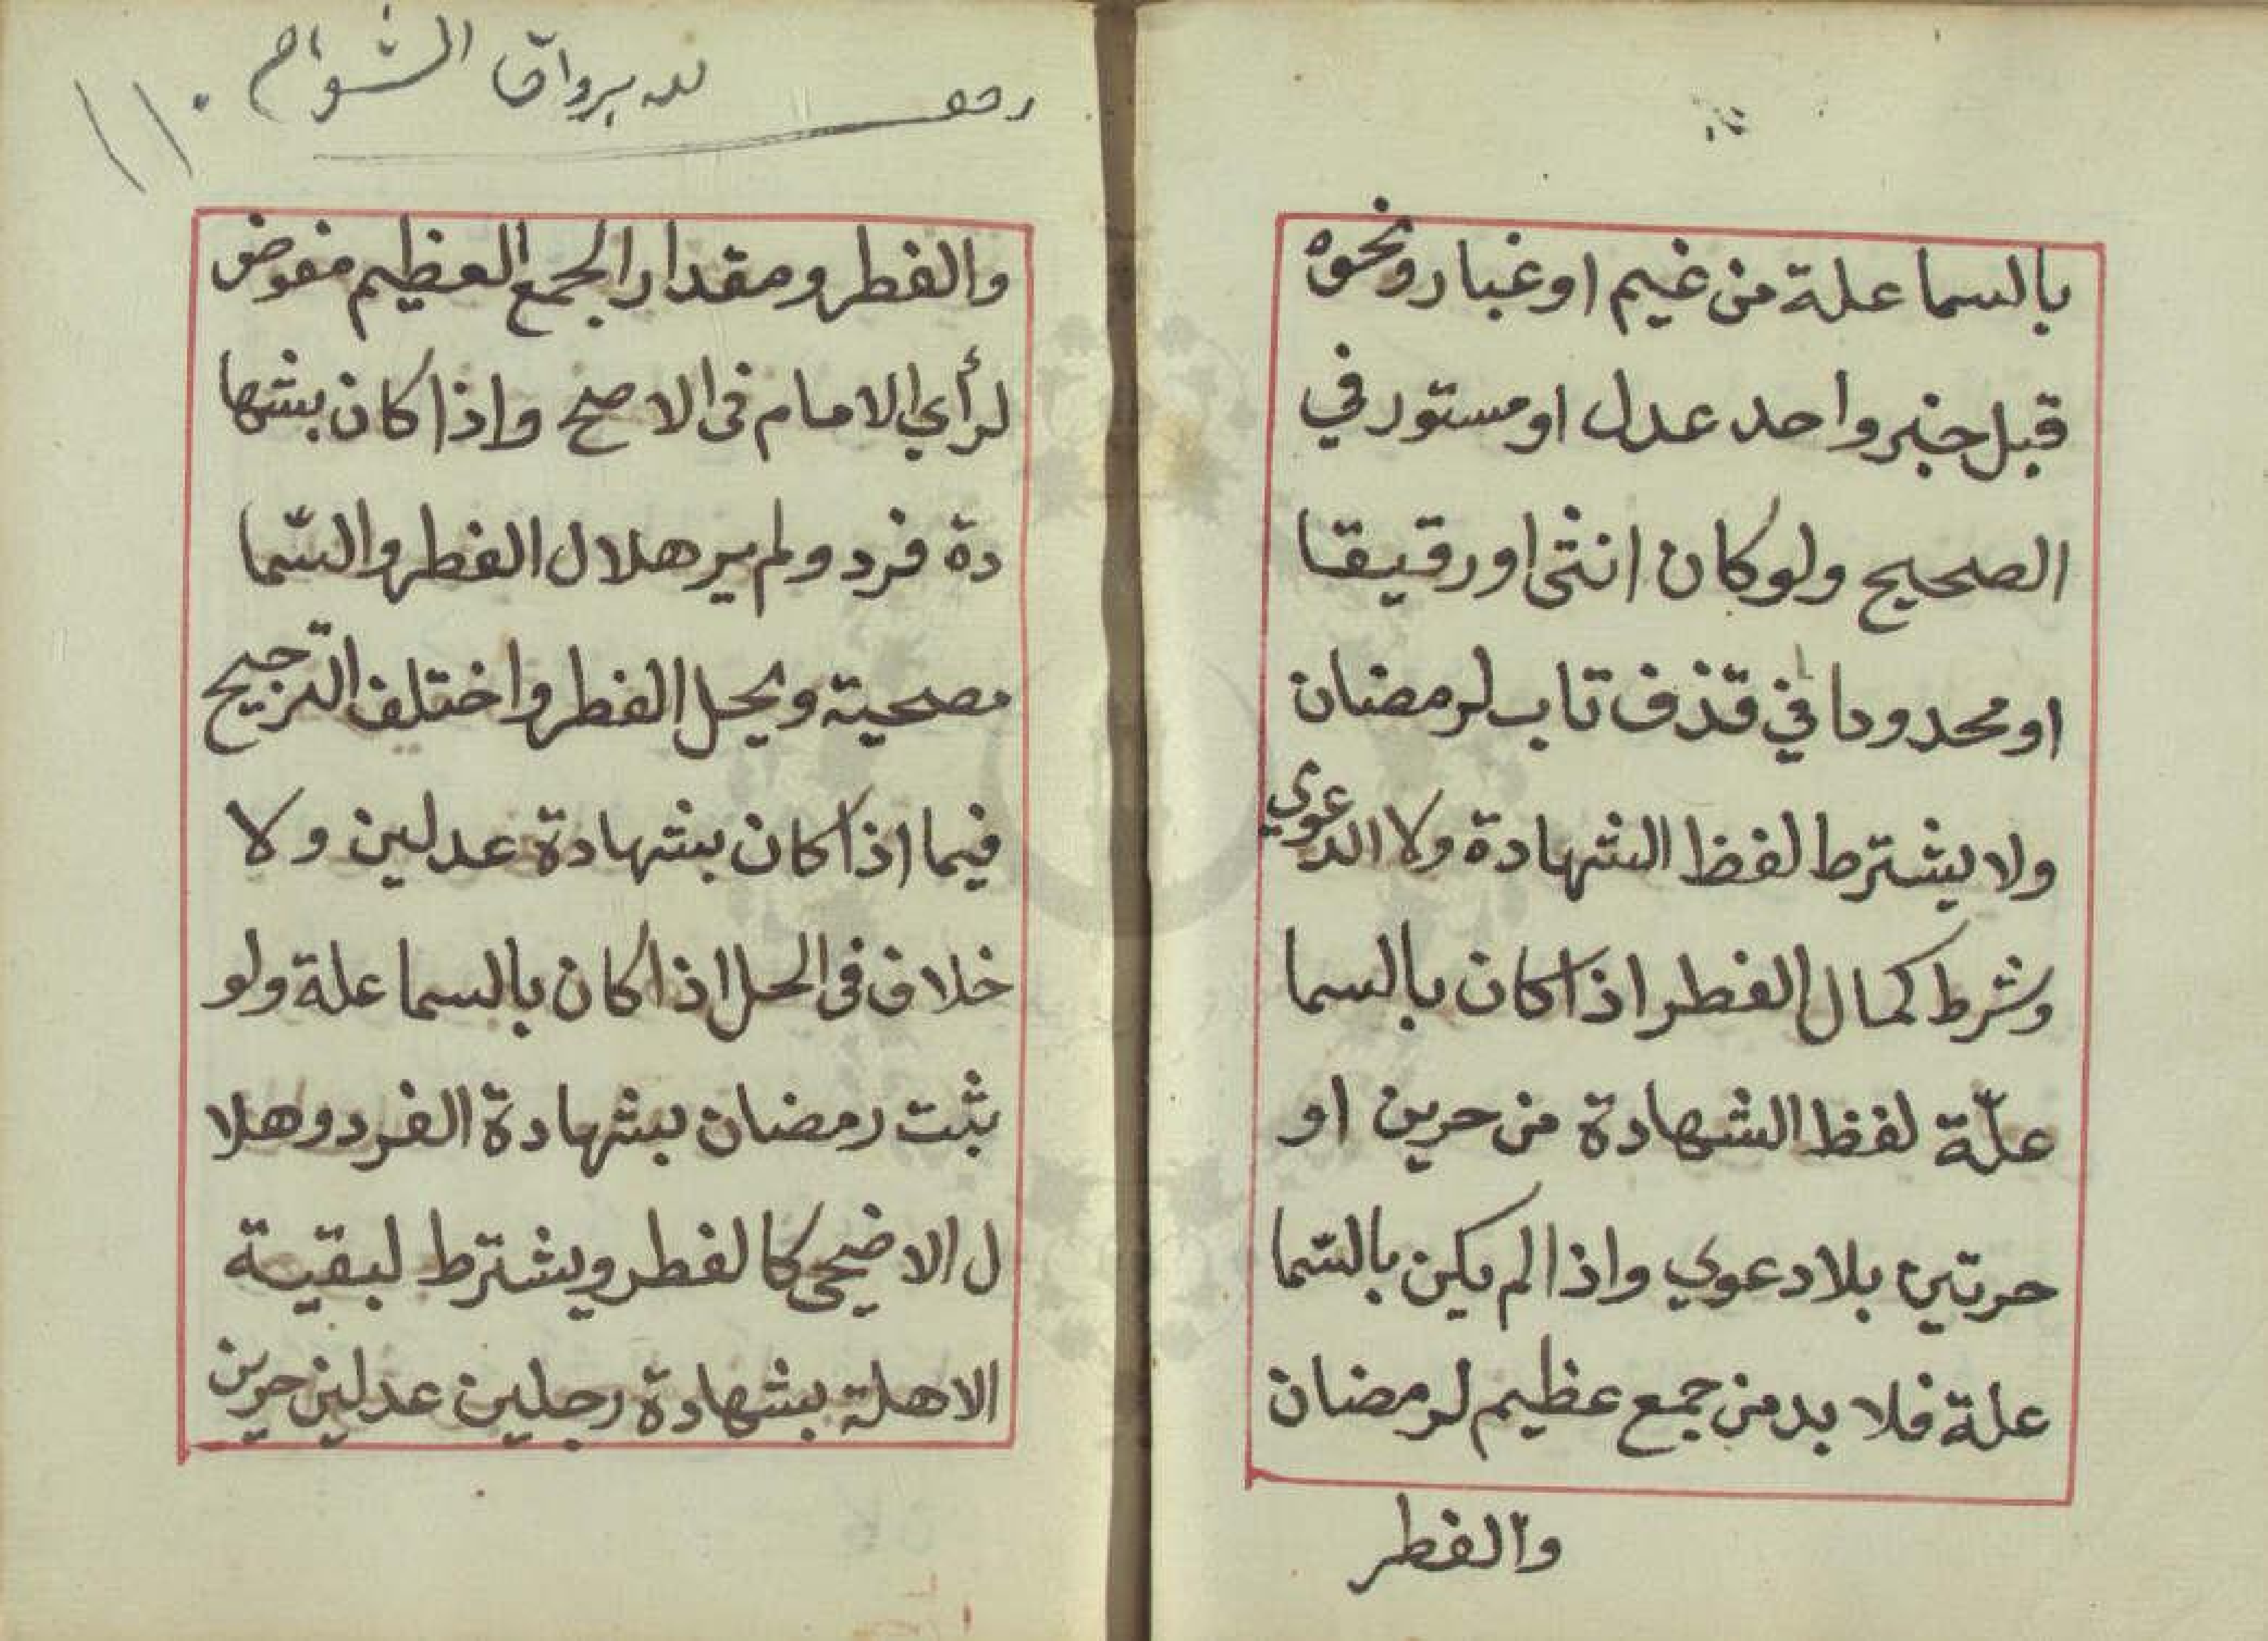 بالسما علة من غيم او غبار ونحوه
قبل خبر واحد عدل او مستور في
الصحيح ولو كان انثى او رقيقا
او محدودا في قذف تاب لرمضان
ولا يشترط لفظ الشهادة ولا الدعوي
وشرط كمال الفطر اذا كان بالسما
علّة لفظ الشهادة من حرين او
حرتين بلا دعوي واذا لم يكن بالسّما
علة فلا بد من جمع عظيم لرمضان
والفطر
لله برواق الشوام
١١٠
والفطر ومقدار الجمع العظيم مفوض
لرأي الامام فى الاصح واذا كان بشها
دة فرد ولم ير هلال الفطر والسّما
مصحية ويحل الفطر واختلف الترجيح
فيما اذا كان بشهادة عدلين ولا
خلاف فى الحل اذا كان بالسما علة ولو
ثبت رمضان بشهادة الفرد وهلا
ل الاضحى كالفطر ويشترط لبقية
الاهلة بشهادة رجلين عدلين حرين